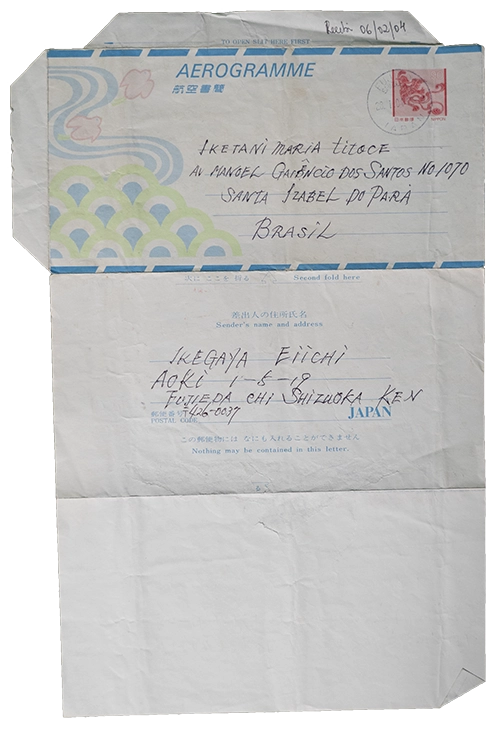 Recebi 06/02/04
TO OPEN SLIT HERE FIRST
AEROGRAMME
航空書簡
日本郵便 NIPPON
IKETANI MARIA TITOCE
AV. MANOEL GAIÊNCIO DOS SANTOS NO.1070
SANTA IZABEL DO PARÁ
BRASIL
次に ここを 折る Second fold here
差出人の住所氏名
Sender's name and address
IKEGAYA EIICHI
AOKI 1-5-19
FUJIEDA CHI SHIZUOKA KEN
郵便番号 〒426-0037 JAPAN
POSTAL CODE
この郵便物には なにも入れることができません
Nothing may be contained in this letter.